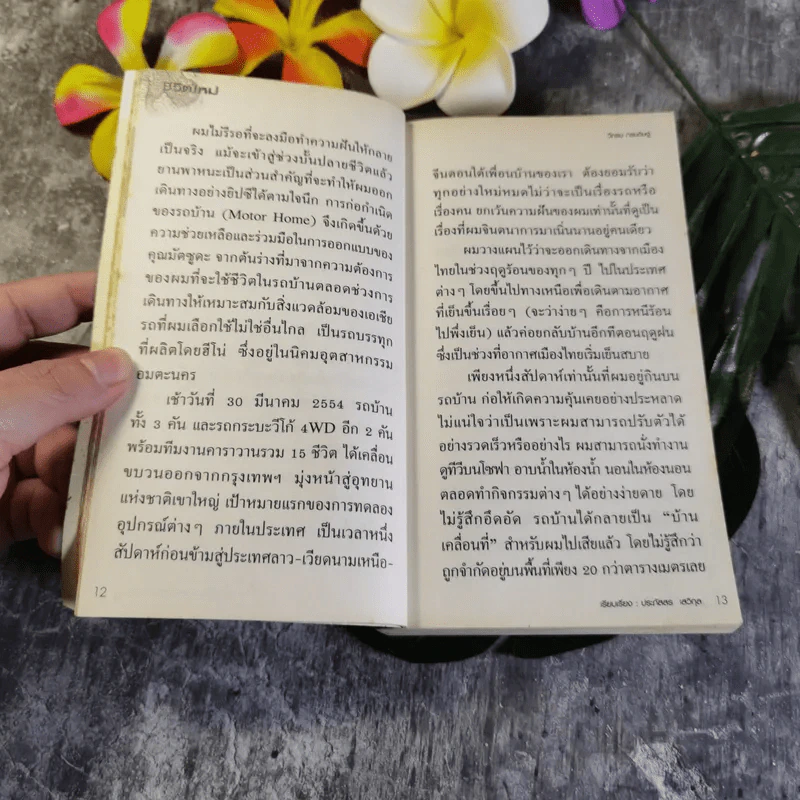 ชีวิตใหม่
ผมไม่รีรอที่จะลงมือทำความฝันให้กลาย
เป็นจริง แม้จะเข้าสู่ช่วงบั้นปลายชีวิตแล้ว
ยานพาหนะเป็นส่วนสำคัญที่จะทำให้ผมออก
เดินทางอย่างยิปซีได้ตามใจนึก การก่อกำเนิด
ของรถบ้าน (Motor Home) จึงเกิดขึ้นด้วย
ความช่วยเหลือและร่วมมือในการออกแบบของ
คุณมัตซูดะ จากต้นร่างที่มาจากความต้องการ
ของผมที่จะใช้ชีวิตในรถบ้านตลอดช่วงการ
เดินทางให้เหมาะสมกับสิ่งแวดล้อมของเอเชีย
รถที่ผมเลือกใช้ไม่ใช่อื่นไกล เป็นรถบรรทุก
ที่ผลิตโดยฮีโน่ ซึ่งอยู่ในนิคมอุตสาหกรรม
อมตะนคร
เช้าวันที่ 30 มีนาคม 2554 รถบ้าน
ทั้ง 3 คัน และรถกระบะวีโก้ 4WD อีก 2 คัน
พร้อมทีมงานคาราวานรวม 15 ชีวิต ได้เคลื่อน
ขบวนออกจากกรุงเทพฯ มุ่งหน้าสู่อุทยาน
แห่งชาติเขาใหญ่ เป้าหมายแรกของการทดลอง
อุปกรณ์ต่างๆ ภายในประเทศ เป็นเวลาหนึ่ง
สัปดาห์ก่อนข้ามสู่ประเทศลาว-เวียดนามเหนือ-
12
วิกรม กรมดิษฐ์
จีนตอนใต้เพื่อนบ้านของเรา ต้องยอมรับว่า
ทุกอย่างใหม่หมดไม่ว่าจะเป็นเรื่องรถหรือ
เรื่องคน ยกเว้นความฝันของผมเท่านั้นที่ดูเป็น
เรื่องที่ผมจินตนาการมาเนิ่นนานอยู่คนเดียว
ผมวางแผนไว้ว่าจะออกเดินทางจากเมือง
ไทยในช่วงฤดูร้อนของทุกๆ ปี ไปในประเทศ
ต่างๆ โดยขึ้นไปทางเหนือเพื่อเดินตามอากาศ
ที่เย็นขึ้นเรื่อยๆ (จะว่าง่ายๆ คือการหนีร้อน
ไปพึ่งเย็น) แล้วค่อยกลับบ้านอีกทีตอนฤดูฝน
ซึ่งเป็นช่วงที่อากาศเมืองไทยเริ่มเย็นสบาย
เพียงหนึ่งสัปดาห์เท่านั้นที่ผมอยู่กินบน
รถบ้าน ก่อให้เกิดความคุ้นเคยอย่างประหลาด
ไม่แน่ใจว่าเป็นเพราะผมสามารถปรับตัวได้
อย่างรวดเร็วหรืออย่างไร ผมสามารถนั่งทำงาน
ดูทีวีบนโซฟา อาบน้ำในห้องน้ำ นอนในห้องนอน
ตลอดทำกิจกรรมต่างๆ ได้อย่างง่ายดาย โดย
ไม่รู้สึกอึดอัด รถบ้านได้กลายเป็น “บ้าน
เคลื่อนที่” สำหรับผมไปเสียแล้ว โดยไม่รู้สึกว่า
ถูกจำกัดอยู่บนพื้นที่เพียง 20 กว่าตารางเมตรเลย
เรียบเรียง : ประภัสสร เสวิกุล 13